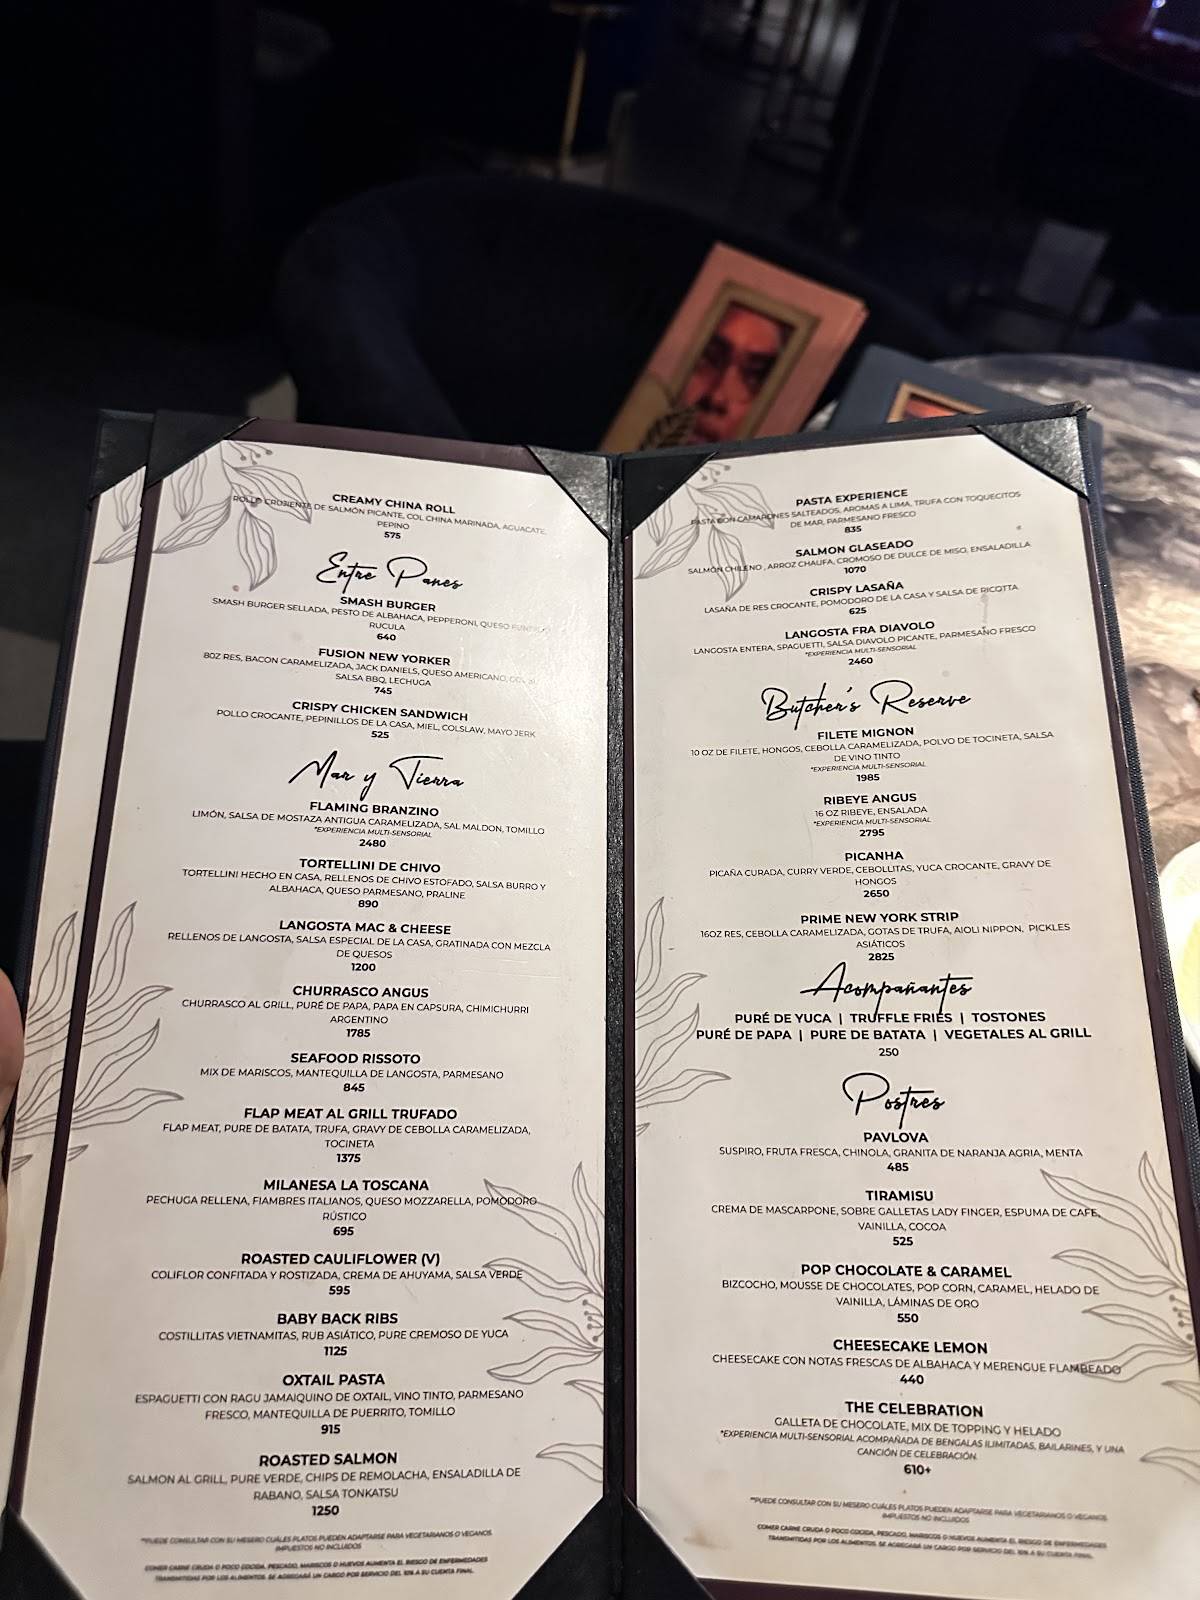 CREAMY CHINA ROLL
ROLLO CROJIENTE DE SALMÓN PICANTE, COL CHINA MARINADA, AGUACATE,
PEPINO
575
Entre Panes
SMASH BURGER
SMASH BURGER SELLADA, PESTO DE ALBAHACA, PEPPERONI, QUESO
RUCULA
640
FUSION NEW YORKER
8OZ RES, BACON CARAMELIZADA, JACK DANIELS, QUESO AMERICANO,
SALSA BBQ, LECHUGA
745
CRISPY CHICKEN SANDWICH
POLLO CROCANTE, PEPINILLOS DE LA CASA, MIEL, COLSLAW, MAYO JERK
525
Mar y Tierra
FLAMING BRANZINO
LIMÓN, SALSA DE MOSTAZA ANTIGUA CARAMELIZADA, SAL MALDON, TOMILLO
*EXPERIENCIA MULTI-SENSORIAL
2480
TORTELLINI DE CHIVO
TORTELLINI HECHO EN CASA, RELLENOS DE CHIVO ESTOFADO, SALSA BURRO Y
ALBAHACA, QUESO PARMESANO, PRALINE
890
LANGOSTA MAC & CHEESE
RELLENOS DE LANGOSTA, SALSA ESPECIAL DE LA CASA, GRATINADA CON MEZCLA
DE QUESOS
1200
CHURRASCO ANGUS
CHURRASCO AL GRILL, PURÉ DE PAPA, PAPA EN CAPSURA, CHIMICHURRI
ARGENTINO
1785
SEAFOOD RISSOTO
MIX DE MARISCOS, MANTEQUILLA DE LANGOSTA, PARMESANO
845
FLAP MEAT AL GRILL TRUFADO
FLAP MEAT, PURE DE BATATA, TRUFA, GRAVY DE CEBOLLA CARAMELIZADA,
TOCINETA
1375
MILANESA LA TOSCANA
PECHUGA RELLENA, FIAMBRES ITALIANOS, QUESO MOZZARELLA, POMODORO
RÚSTICO
695
ROASTED CAULIFLOWER (V)
COLIFLOR CONFITADA Y ROSTIZADA, CREMA DE AHUYAMA, SALSA VERDE
595
BABY BACK RIBS
COSTILLITAS VIETNAMITAS, RUB ASIÁTICO, PURE CREMOSO DE YUCA
1125
OXTAIL PASTA
ESPAGUETTI CON RAGU JAMAIQUINO DE OXTAIL, VINO TINTO, PARMESANO
FRESCO, MANTEQUILLA DE PUERRITO, TOMILLO
915
ROASTED SALMON
SALMON AL GRILL, PURE VERDE, CHIPS DE REMOLACHA, ENSALADILLA DE
RABANO, SALSA TONKATSU
1250
**PUEDE CONSULTAR CON SU MESERO CUÁLES PLATOS PUEDEN ADAPTARSE PARA VEGETARIANOS O VEGANOS.
IMPUESTOS NO INCLUIDOS
COMER CARNE CRUDA O POCO COCIDA, PESCADO, MARISCOS O HUEVOS AUMENTA EL RIESGO DE ENFERMEDADES
TRANSMITIDAS POR LOS ALIMENTOS. SE AGREGARÁ UN CARGO POR SERVICIO DEL 10% A SU CUENTA FINAL.
PASTA EXPERIENCE
PASTA CON CAMARONES SALTEADOS, AROMAS A LIMA, TRUFA CON TOQUECITOS
DE MAR, PARMESANO FRESCO
835
SALMON GLASEADO
SALMÓN CHILENO , ARROZ CHAUFA, CROMOSO DE DULCE DE MISO, ENSALADILLA
1070
CRISPY LASAÑA
LASAÑA DE RES CROCANTE, POMODORO DE LA CASA Y SALSA DE RICOTTA
625
LANGOSTA FRA DIAVOLO
LANGOSTA ENTERA, SPAGUETTI, SALSA DIAVOLO PICANTE, PARMESAÑO FRESCO
*EXPERIENCIA MULTI-SENSORIAL
2460
Butcher's Reserve
FILETE MIGNON
10 OZ DE FILETE, HONGOS, CEBOLLA CARAMELIZADA, POLVO DE TOCINETA, SALSA
DE VINO TINTO
*EXPERIENCIA MULTI-SENSORIAL
1985
RIBEYE ANGUS
16 OZ RIBEYE, ENSALADA
*EXPERIENCIA MULTI-SENSORIAL
2795
PICANHA
PICAÑA CURADA, CURRY VERDE, CEBOLLITAS, YUCA CROCANTE, GRAVY DE
HONGOS
2650
PRIME NEW YORK STRIP
16OZ RES, CEBOLLA CARAMELIZADA, GOTAS DE TRUFA, AIOLI NIPPON, PICKLES
ASIÁTICOS
2825
Acompañantes
PURÉ DE YUCA | TRUFFLE FRIES | TOSTONES
PURÉ DE PAPA | PURE DE BATATA | VEGETALES AL GRILL
250
Postres
PAVLOVA
SUSPIRO, FRUTA FRESCA, CHINOLA, GRANITA DE NARANJA AGRIA, MENTA
485
TIRAMISU
CREMA DE MASCARPONE, SOBRE GALLETAS LADY FINGER, ESPUMA DE CAFE,
VAINILLA, COCOA
525
POP CHOCOLATE & CARAMEL
BIZCOCHO, MOUSSE DE CHOCOLATES, POP CORN, CARAMEL, HELADO DE
VAINILLA, LÁMINAS DE ORO
550
CHEESECAKE LEMON
CHEESECAKE CON NOTAS FRESCAS DE ALBAHACA Y MERENGUE FLAMBEADO
440
THE CELEBRATION
GALLETA DE CHOCOLATE, MIX DE TOPPING Y HELADO
*EXPERIENCIA MULTI-SENSORIAL ACOMPAÑADA DE BENGALAS ILIMITADAS, BAILARINES, Y UNA
CANCIÓN DE CELEBRACIÓN.
610+
**PUEDE CONSULTAR CON SU MESERO CUÁLES PLATOS PUEDEN ADAPTARSE PARA VEGETARIANOS O VEGANOS.
IMPUESTOS NO INCLUIDOS
COMER CARNE CRUDA O POCO COCIDA, PESCADO, MARISCOS O HUEVOS AUMENTA EL RIESGO DE ENFERMEDADES
TRANSMITIDAS POR LOS ALIMENTOS. SE AGREGARÁ UN CARGO POR SERVICIO DEL 10% A SU CUENTA FINAL.